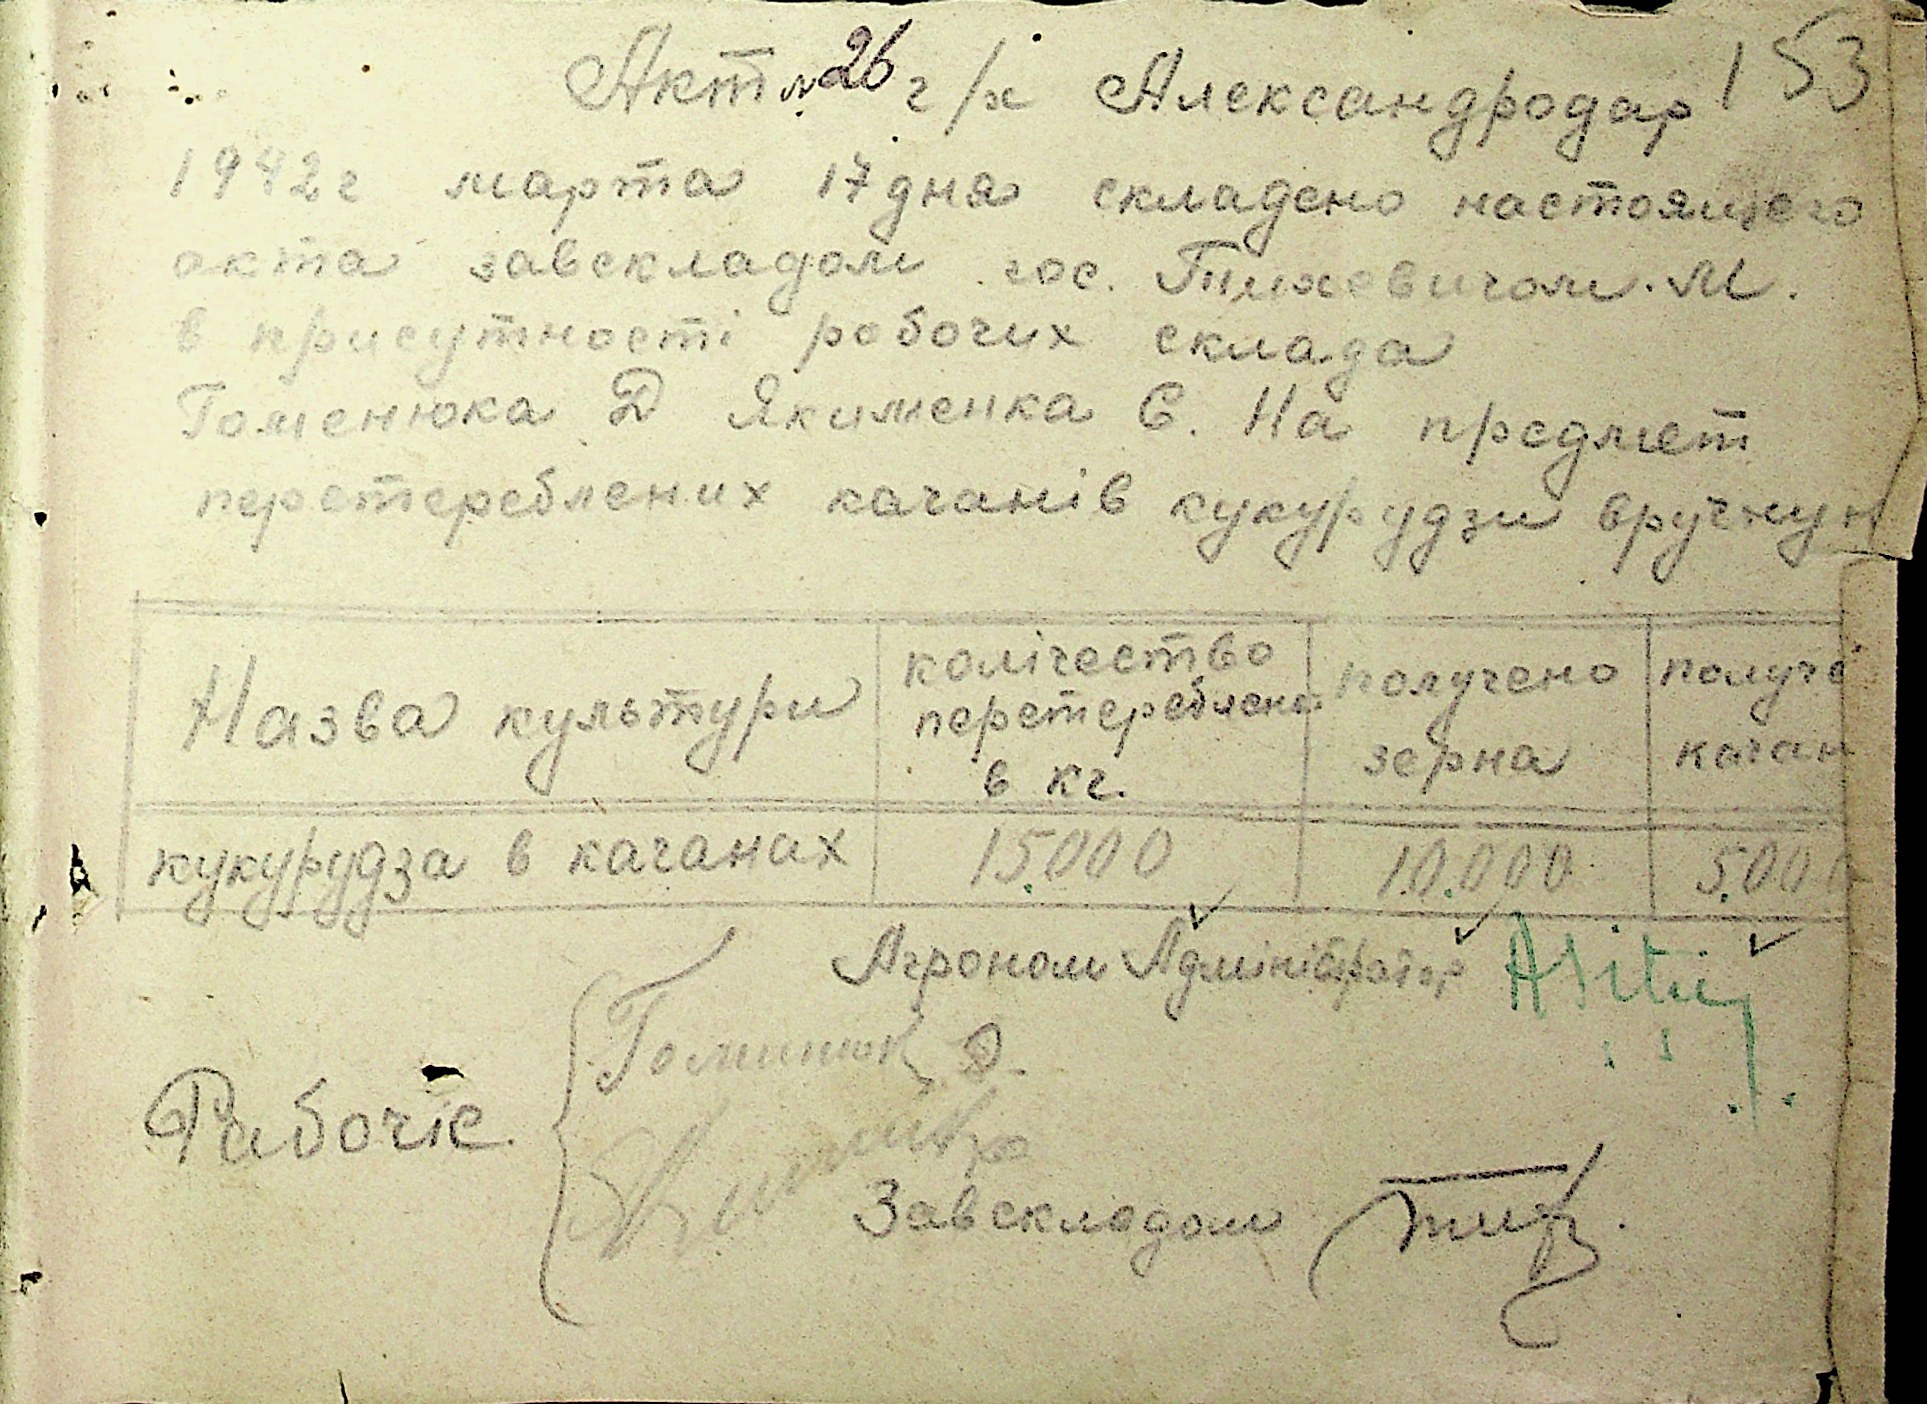 Акт №26 г/х Александродар 153
1942г марта 17 дня складено настоящего
акта завскладом гос. Тихевичом. М.
в присутности робочих склада
Гоменюка Д Якименка Є. На предмет
перетереблених качанів кукурудзи вручную
Назва культури
колічество
перетереблено
в кг.
получено
зерна
получе
качан
кукурудза в качанах 15.000 10.000 5.000
Агроном Адміністратор
Гоминюк Д.
Рабочіе
Завскладом